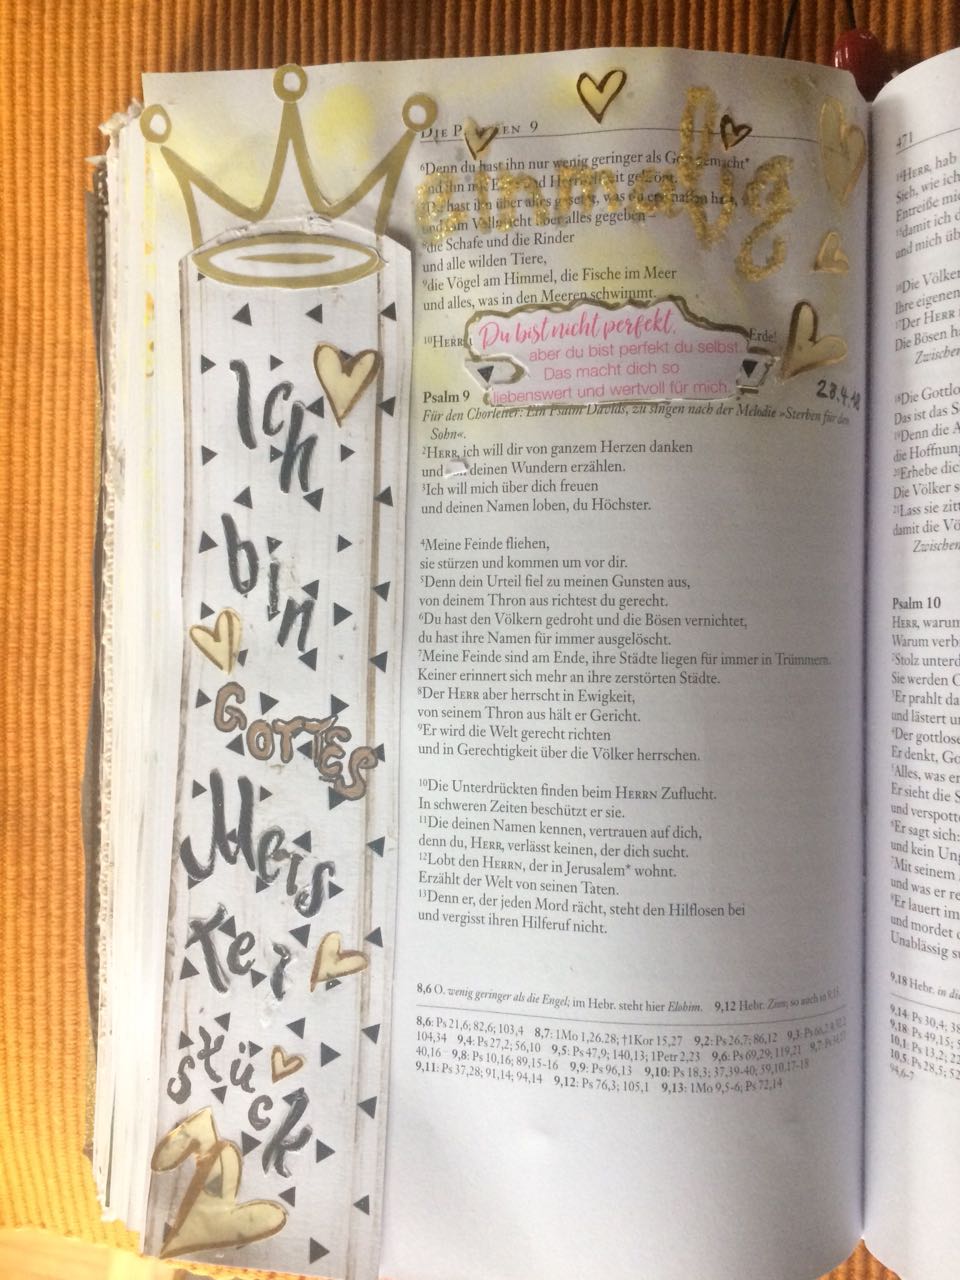 Ich
bin
GOTTES
Meis
ter
stück
DIE PSALMEN 9
⁶Denn du hast ihn nur wenig geringer als Gott gemacht*
und ihn mit Ehre und Herrlichkeit gekrönt.
⁷Du hast ihn über alles gesetzt, was du erschaffen hast,
und ihm Vollmacht über alles gegeben –
⁸die Schafe und die Rinder
und alle wilden Tiere,
⁹die Vögel am Himmel, die Fische im Meer
und alles, was in den Meeren schwimmt.
¹⁰HERR, Erde!
Du bist nicht perfekt,
aber du bist perfekt du selbst.
Das macht dich so
liebenswert und wertvoll für mich.
23.4.18
Psalm 9
Für den Chorleiter: Ein Psalm Davids, zu singen nach der Melodie »Sterben für den
Sohn«.
²HERR, ich will dir von ganzem Herzen danken
und deinen Wundern erzählen.
³Ich will mich über dich freuen
und deinen Namen loben, du Höchster.
⁴Meine Feinde fliehen,
sie stürzen und kommen um vor dir.
⁵Denn dein Urteil fiel zu meinen Gunsten aus,
von deinem Thron aus richtest du gerecht.
⁶Du hast den Völkern gedroht und die Bösen vernichtet,
du hast ihre Namen für immer ausgelöscht.
⁷Meine Feinde sind am Ende, ihre Städte liegen für immer in Trümmern.
Keiner erinnert sich mehr an ihre zerstörten Städte.
⁸Der HERR aber herrscht in Ewigkeit,
von seinem Thron aus hält er Gericht.
⁹Er wird die Welt gerecht richten
und in Gerechtigkeit über die Völker herrschen.
¹⁰Die Unterdrückten finden beim HERRN Zuflucht.
In schweren Zeiten beschützt er sie.
¹¹Die deinen Namen kennen, vertrauen auf dich,
denn du, HERR, verlässt keinen, der dich sucht.
¹²Lobt den HERRN, der in Jerusalem* wohnt.
Erzählt der Welt von seinen Taten.
¹³Denn er, der jeden Mord rächt, steht den Hilflosen bei
und vergisst ihren Hilferuf nicht.
8,6 O. wenig geringer als die Engel; im Hebr. steht hier Elohim. 9,12 Hebr. Zion; so auch in 9,15.
8,6: Ps 21,6; 82,6; 103,4 8,7: 1Mo 1,26.28; †1Kor 15,27 9,2: Ps 26,7; 86,12 9,3:
104,34 9,4: Ps 27,2; 56,10 9,5: Ps 47,9; 140,13; 1Petr 2,23 9,6: Ps 69,29; 119,21 9,7:
40,16 9,8: Ps 10,16; 89,15-16 9,9: Ps 96,13 9,10: Ps 18,3; 37,39-40; 59,10.17-18
9,11: Ps 37,28; 91,14; 94,14 9,12: Ps 76,3; 105,1 9,13: 1Mo 9,5-6; Ps 72,14
471
¹⁴HERR, hab
Sieh, wie ich
Entreiße mi
¹⁵damit ich d
und mich üb
¹⁶Die Völker
Ihre eigenen
¹⁷Der HERR
Die Bösen
Zwischen
¹⁸Die Gottlo
Das ist das S
¹⁹Denn die A
die Hoffnung
²⁰Erhebe dic
Die Völker s
²¹Lass sie zitt
damit die Vö
Zwischen
Psalm 10
HERR, warum
Warum verb
²Stolz unterd
Sie werden
³Er prahlt da
und lästert u
⁴Der gottlose
Er denkt, Go
⁵Alles, was er
Er sieht die S
und verspotte
⁶Er sagt sich:
und kein Ung
⁷Mit seinem
und was er re
⁸Er lauert im
und mordet
Unablässig s
9,18 Hebr. in die
9,14: Ps 30,4; 38
9,18: Ps 49,15; 5
10,1: Ps 13,2; 22
10,5: Ps 28,5; 52
94,6-7